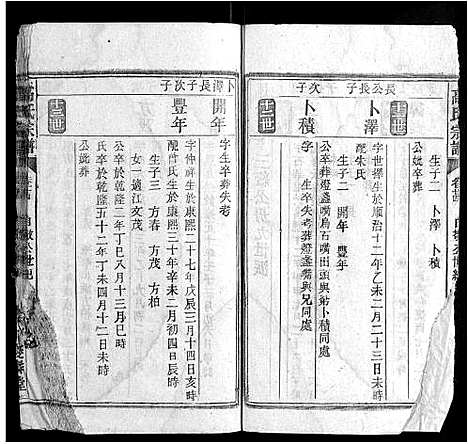 高氏宗譜
生子二 卜澤 卜積
公妣卒葬
長公長子 次子
十二世
卜澤
字世擇生於順治十二年乙未二月二十三日未時
配朱氏
生子二 開年 豐年
公卒葬燈盞嘴烏石嘴出頭與姑卜積同處
卜積
字 生卒失考葬燈盞嘴與兄同處
卜澤長子 次子
十三世
開年
字 生卒葬失考
豐年
字仲 生於康熙二十七年戊辰三月十四日亥時
配曾氏生於康熙三十年辛未二月初四日辰時
生子三 方春 方茂 方柏
女一適江文茂
公卒於乾隆二年丁巳八月十三月巳時
氏卒於乾隆五十二年丁未四月十二日未時
公妣葬
高氏宗譜